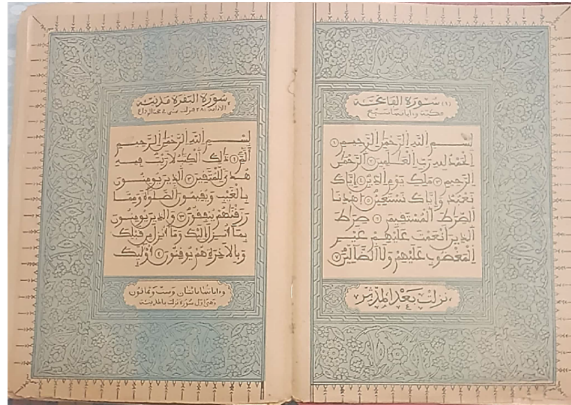 (١) سورة الفاتحة
مكية وآياتها سبع
بسم الله الرحمن الرحيم
الحمد لله رب العلمين الرحمن
الرحيم ملك يوم الدين إياك
نعبد وإياك نستعين اهدنا
الصراط المستقيم صراط
الذين أنعمت عليهم غير
المغضوب عليهم ولا الضالين
نزلت بعد المدثر
سورة البقرة مدنية
بسم الله الرحمن الرحيم
الم ذلك الكتب لا ريب فيه
هدى للمتقين الذين يؤمنون
بالغيب ويقيمون الصلوة ومما
رزقنهم ينفقون والذين يؤمنون
بما أنزل إليك وما أنزل من قبلك
وبالآخرة هم يوقنون أولئك
وآياتها مائتان وست وثمانون
وهي أول سورة نزلت بالمدينة